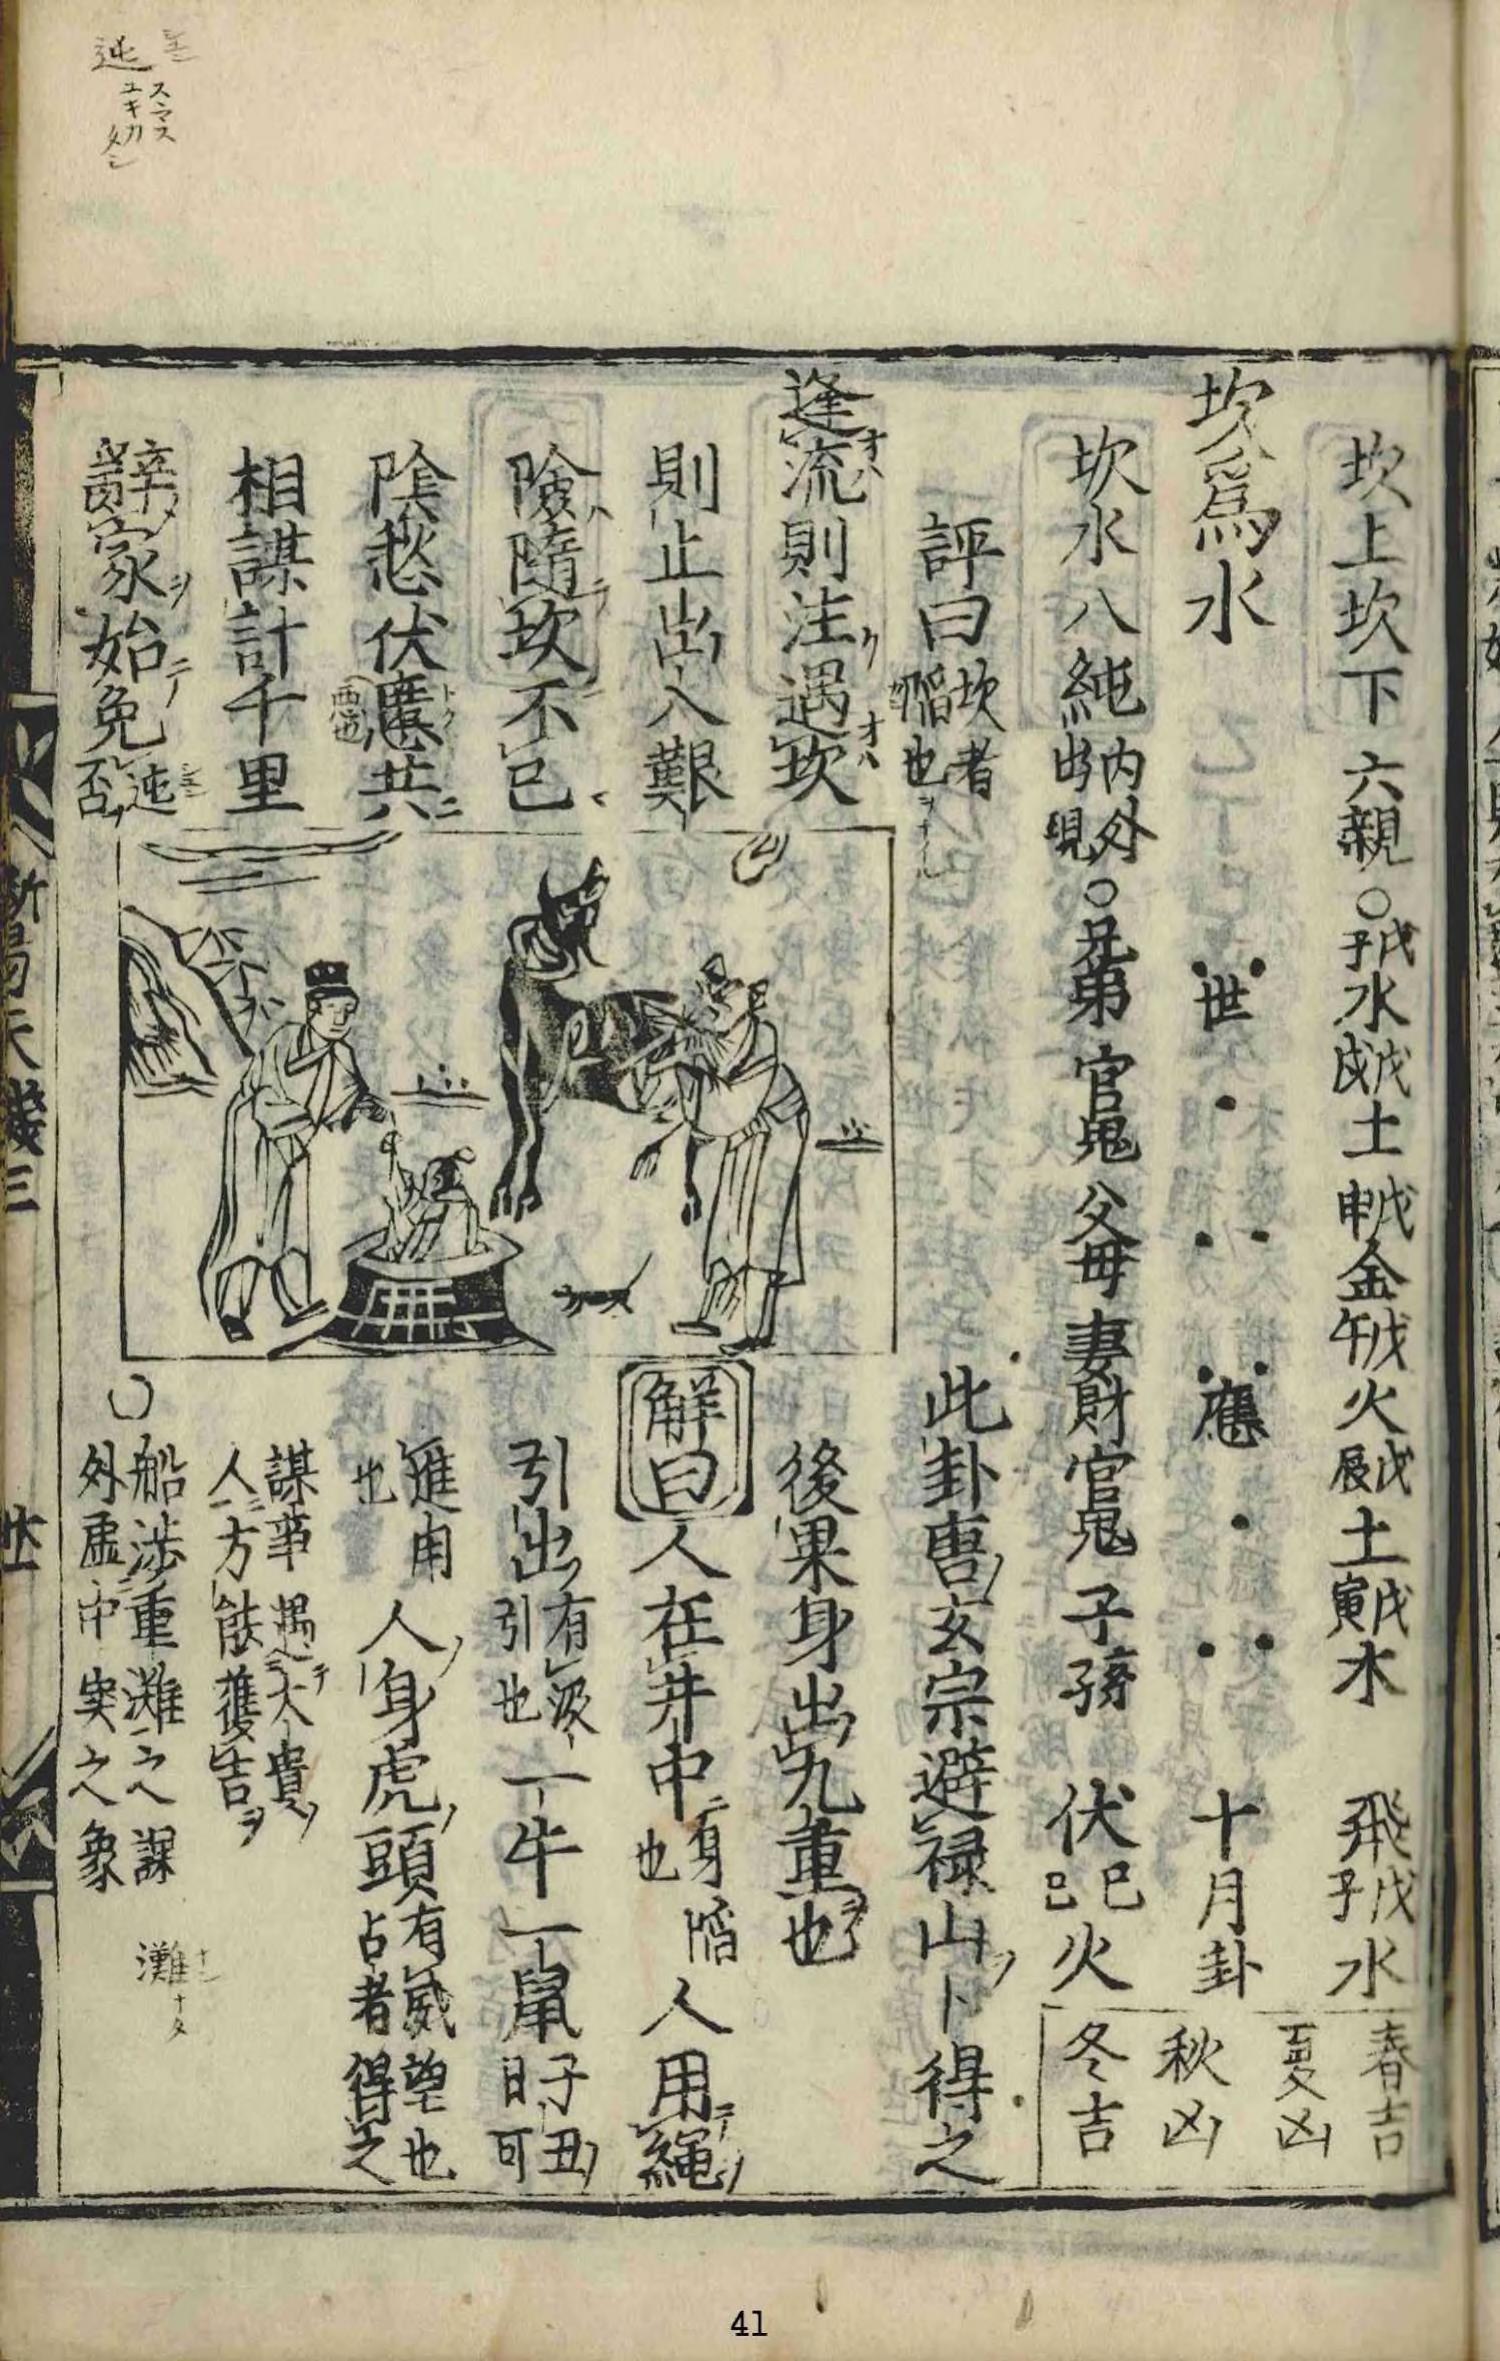 坎上坎下 六親○戊子水戊戌土戊申金戊午火戊辰土戊寅木 飛戊子水
坎爲水 世 應 十月卦
坎水八純 内外出現○兄弟 官鬼 父母 妻財 官鬼 子孫 伏己巳火
春吉
夏凶
秋凶
冬吉
評曰 坎者陷也
逢流則注遇坎
則止出入艱
險隨坎不已
陰愁伏慝共
惡也
相謀計千里
辭家始免迍否
此卦唐玄宗避禄山卜得之
後果身出九重也
解曰 人在井中 身陷也 人用繩
引出 有汲引也 一牛一鼠 子丑日可
進用也 人身虎頭 有威望也占者得之
謀事遇大貴人方能獲吉
○船涉重灘之課
外虛中実之象
灘
迍
新
天
三
41